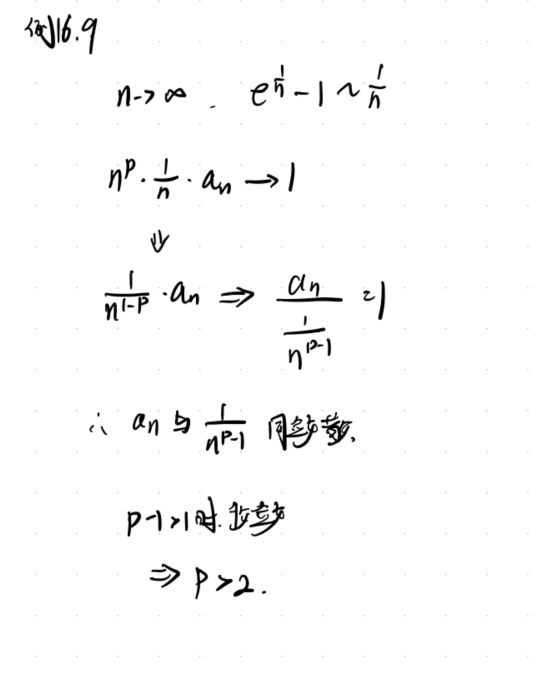 例16.9
n→∞. e^{\frac{1}{n}}-1 ~ \frac{1}{n}
n^p · \frac{1}{n} · a_n → 1
⇓
\frac{1}{n^{1-p}} · a_n ⇒ \frac{a_n}{\frac{1}{n^{p-1}}} = 1
∴ a_n 与 \frac{1}{n^{p-1}} 同敛散.
p-1>1时.收敛
⇒ p>2.